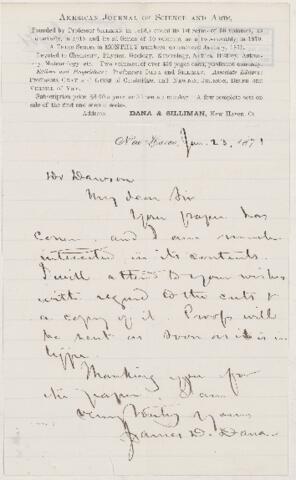 AMERICAN JOURNAL OF SCIENCE AND ARTS.
Founded by Professor SILLIMAN in 1818, ended its 1st series of 50 volumes, as
a quarterly, in 1845 and its 2d Series of 50 volumes, as a two-monthly, in 1870.
A THIRD SERIES in MONTHLY numbers commenced January, 1871.
Devoted to Chemistry, Physics, Geology, Mineralogy, Natural History, Astron-
omy, Meteorology, etc. Two volumes of over 450 pages each, published annually.
Editors and Proprietors: Professors DANA and SILLIMAN. Associate Editors:
Professors GRAY and GIBBS of Cambridge, and NEWTON, JOHNSON, BRUSH and
VERRILL of Yale.
Subscription price $6.00 a year, or 50 cents a number. A few complete sets on
sale of the first and second series.
Address DANA & SILLIMAN, New Haven, Ct.
New Haven, Jan. 23, 1871
Dr Dawson
My dear Sir
Your paper has
come and I am much
interested in its contents.
I will attend to your wishes
with regard to the cuts &
a copy of it. Proofs will
be sent as soon as it is in
type.
Thanking you for
the paper, I am
Very truly yours
James D. Dana